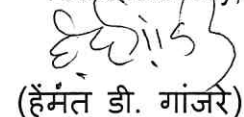 (हेमंत डी. गांजरे)